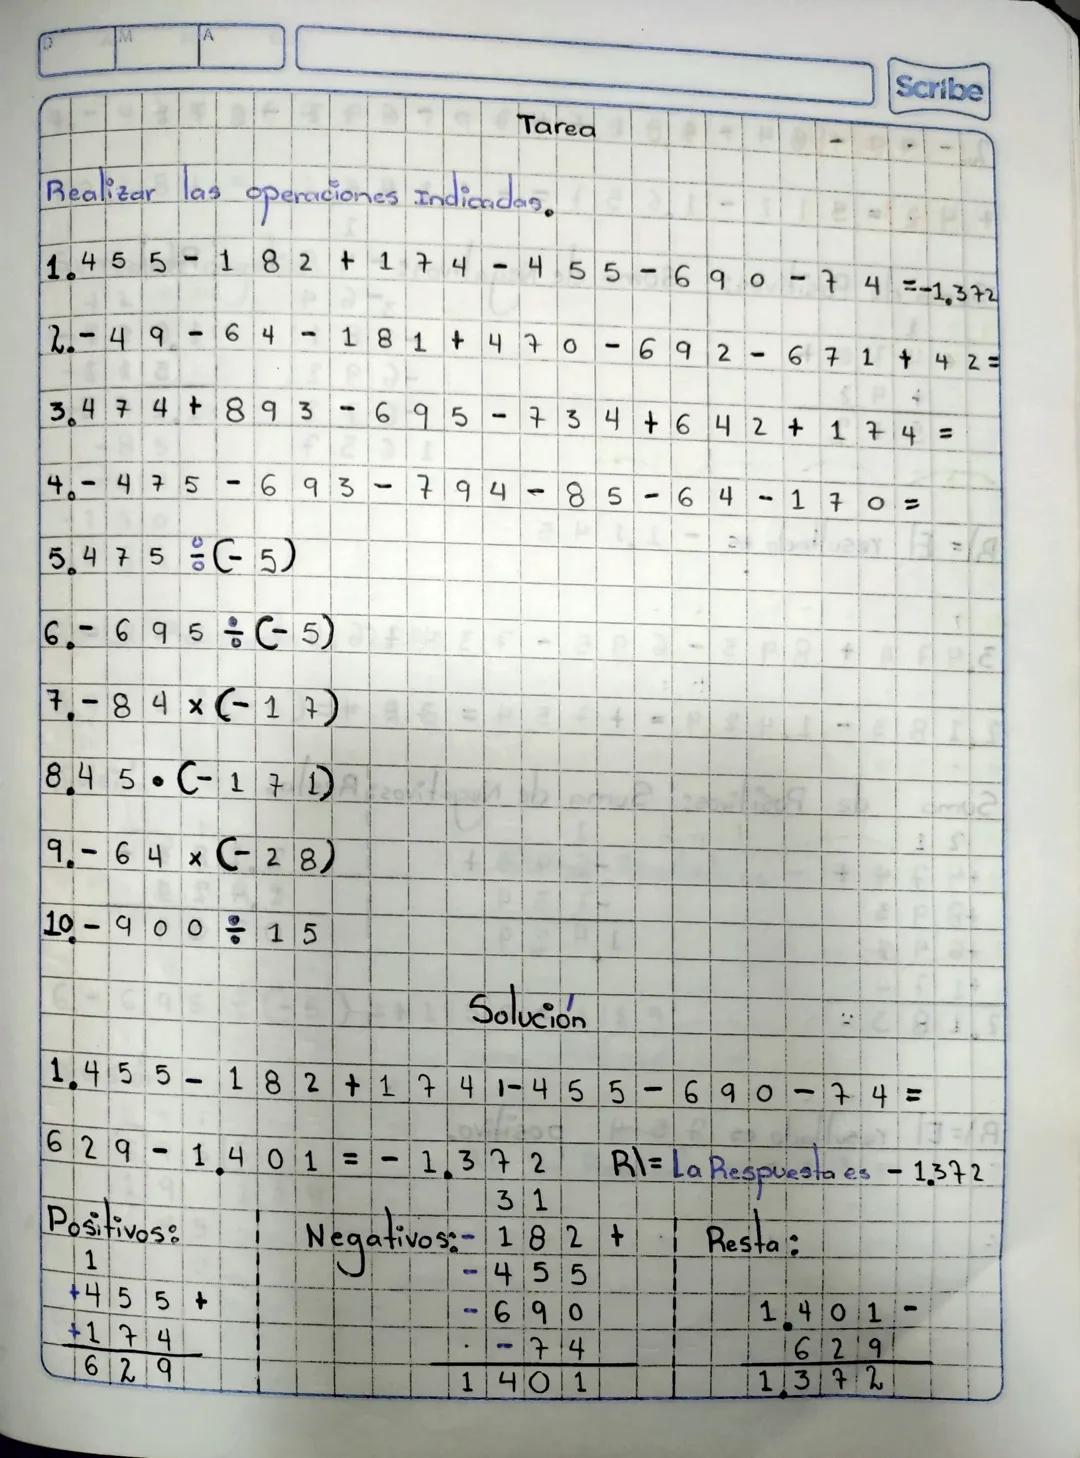 D M A
Scribe
Tarea
Realizar las operaciones Indicadas.
1. 455 - 182 + 174 - 455 - 690 - 74 = -1,372
2. - 49 - 64 - 181 + 470 - 692 - 671 + 42 =
3. 474 + 893 - 695 - 734 + 642 + 174 =
4. - 475 - 693 - 794 - 85 - 64 - 170 =
5. 475 ÷ (- 5)
6. - 695 ÷ (- 5)
7. - 84 x (- 17)
8. 45 • (- 171)
9. - 64 x (- 28)
10. - 900 ÷ 15
Solución
1. 455 - 182 + 174 - 455 - 690 - 74 =
629 - 1.401 = - 1.372 R\= La Respuesta es - 1.372
Positivos:
1
+455 +
+174
629
31
Negativos: - 182 +
- 455
- 690
- 74
1401
Resta:
1.401 -
629
1.372